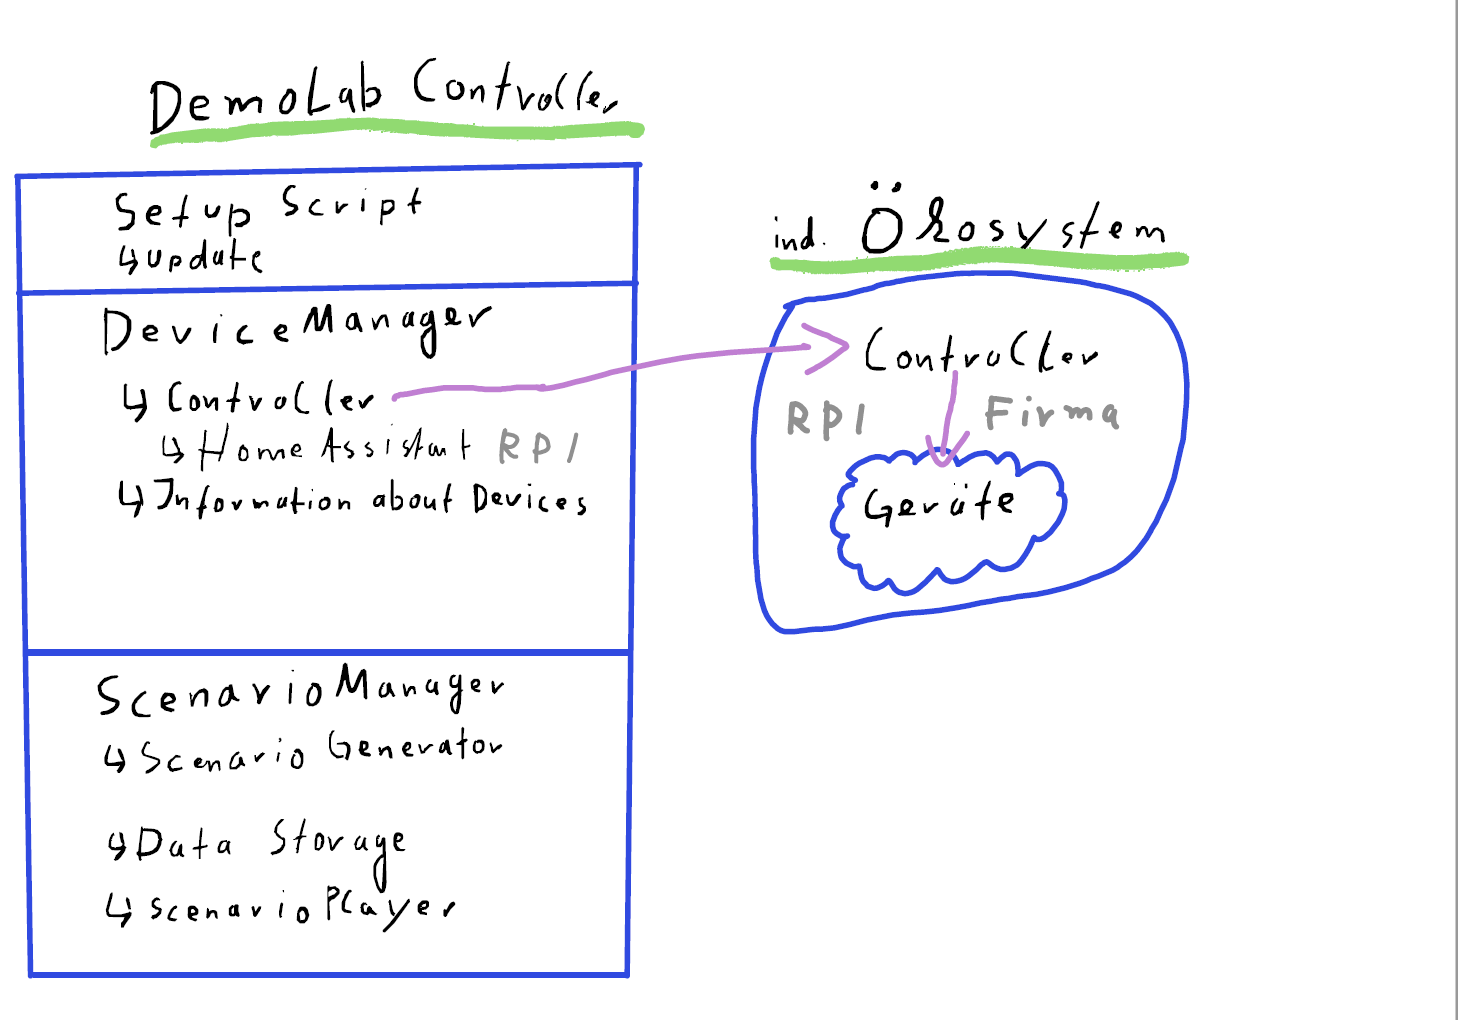 DemoLab Controller
Setup Script
↳ update
DeviceManager
↳ Controller
↳ Home Assistant RPI
↳ Information about Devices
ScenarioManager
↳ Scenario Generator
↳ Data Storage
↳ ScenarioPlayer
ind. Ökosystem
Controller
RPI Firma
Geräte